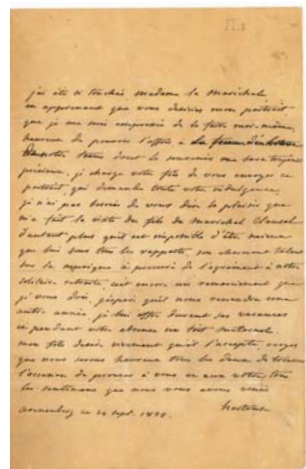 j'ai été si touchée, madame la Maréchale
en apprenant que vous desiriez mon portrait,
que je me suis empressée de le faire moi-même,
heureuse de pouvoir l'offrir à la femme d'un homme
dont la mémoire me sera toujours
précieuse, je charge votre fils de vous envoyer ce
portrait, qui demande toute votre indulgence,
je n'ai pas besoin de vous dire le plaisir que
m'a fait la visite du fils du Maréchal Clausel
d'autant plus qu'il est impossible d'être mieux
que lui sous tous les rapports, son charmant talent
sur la musique a procuré de l'agrément à notre
solitaire retraite, c'est encore un remerciement que
je vous dois, j'espère qu'il nous reviendra une
autre année, je lui offre durant ses vacances
et pendant votre absence un toit maternel.
mon fils desire vivement qu'il l'accepte, croyez
que nous serons heureux tous les deux de trouver
l'occasion de prouver à vous et aux vôtres tous
les sentimens que nous vous avons voués
Arenenberg ce 24 sept. 1835.
Hortense